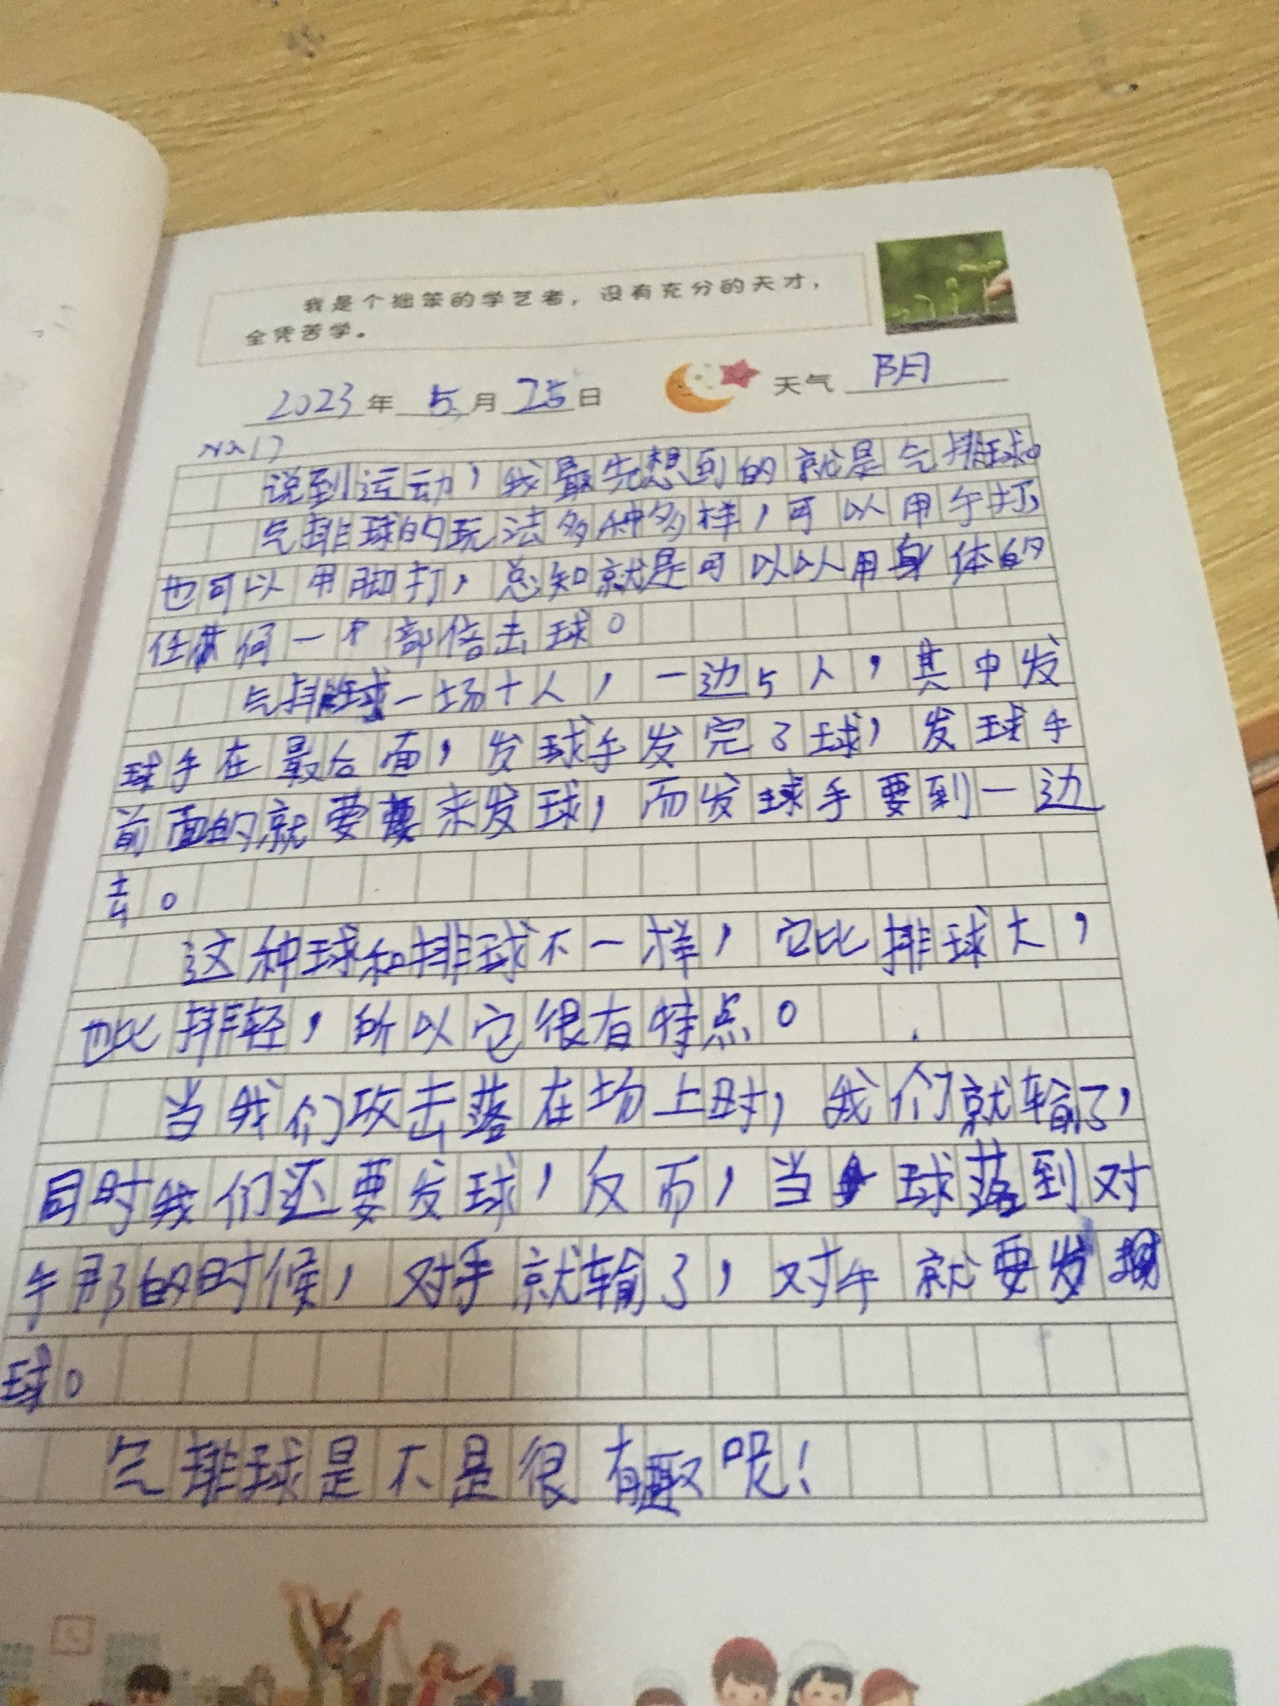 我是个拙笨的学艺者，没有充分的天才，
全凭苦学。
2023年 5月 25日 天气 阴
说到运动，我最先想到的就是气排球。
气排球的玩法多种多样，可以用手打，
也可以用脚打，总知就是可以以用身体的
任何一个部倍击球。
气排球一场十人，一边5人，其中发
球手在最后面，发球手发完了球，发球手
前面的就要来发球，而发球手要到一边
去。
这种球和排球不一样，它比排球大，
也比排轻，所以它很有特点。
当我们攻击落在场上时，我们就输了，
同时我们还要发球，反而，当球落到对
手那的时候，对手就输了，对手就要发
球。
气排球是不是很有趣呢！